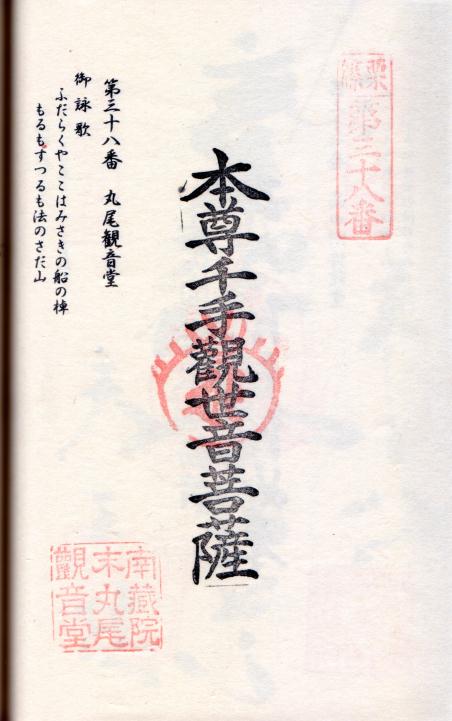 篠栗
第三十八番
本尊千手觀世音菩薩
第三十八番　丸尾観音堂
御詠歌
ふだらくやここはみさきの船の棹
もるもすつるも法のさだ山
南藏院
末丸尾
觀音堂